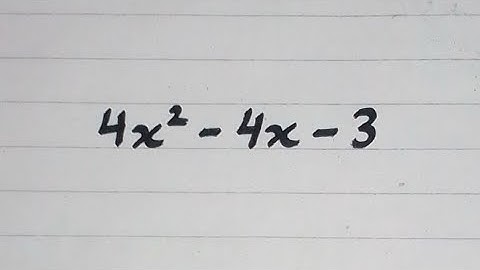 4x² - 4x - 3